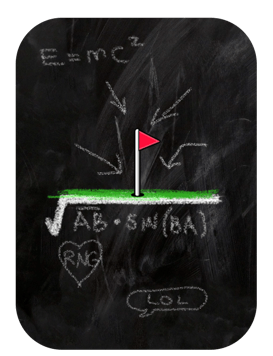 E=mc²
√AB • SIN(BA)
RNG
LOL